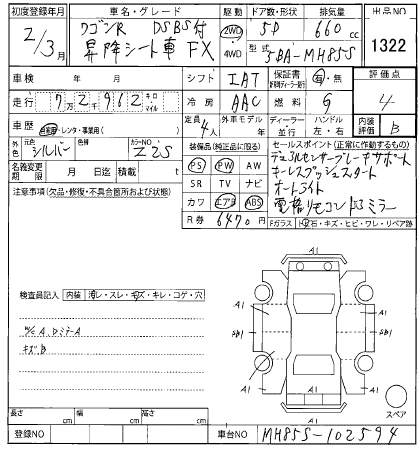 初度登録年月 車名・グレード 駆動 ドア数・形状 排気量 出品NO
2/3月 ワゴンR DSBS付 2WD 5D 660cc 1322
昇降シート車 FX 4WD 型式 5BA-MH85S
車検 年 月 シフト IAT 保証書 有・無 評価点
走行 7万2962 キロ マイル 冷房 AAC 燃料 G 4
車歴 自家用・レンタ・事業用( ) 定員 4人 外車モデル 年 ディーラー 並行 ハンドル 左・右 内装評価 B
外色 元色 シルバー 色替 カラーNO Z2S
名義変更期限 月 日迄 積載 t
装備品(純正品に限る)
PS PW AW
SR TV ナビ
カワ エアB ABS
R券 6470円
セールスポイント(正常に作動するもの)
デュアルセンサーブレーキサポート
キーレスプッシュスタート
オートライト
電格リモコンドアミラー
Fガラス
石・キズ・ヒビ・ワレ・リペア跡
注意事項(欠品・修復・不具合箇所および状態)
検査員記入 内装 汚レ・スレ・キズ・キレ・コゲ・穴
W/C A、DミラーA
キズB
A1
A1 A1
5B1 5B1
A1 A1
A1
スペア
長さ cm 幅 cm 高さ cm
登録NO 車台NO MH85S-102594